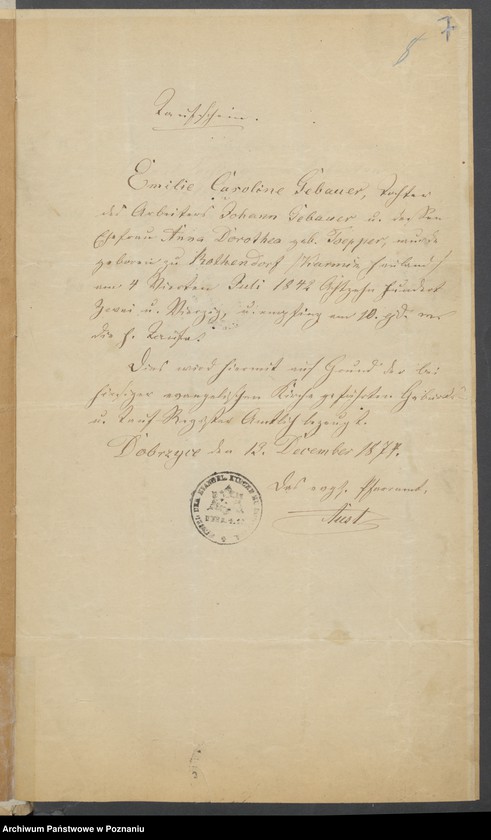 8 7
Taufschein.
Emilie Caroline Gebauer, Tochter
des Arbeiters Johann Gebauer u. dessen
Ehefrau Anna Dorothea geb. Toepper, wurde
geboren zu Rothendorf /Karmin, Hauland/
am 4 Vierten Juli 1842 Achtzehn hundert
Zwei u. Vierzig, u. empfing am 10. ejd. m.
die h. Taufe.
Dies wird hiermit auf Grund der bei
hiesiger evangelischen Kirche geführten Geburts
u. Tauf Register Amtlich bezeugt.
Dobrzyca den 12. December 1877.
Das evgl. Pfarramt.
Aust
Archiwum Państwowe w Poznaniu